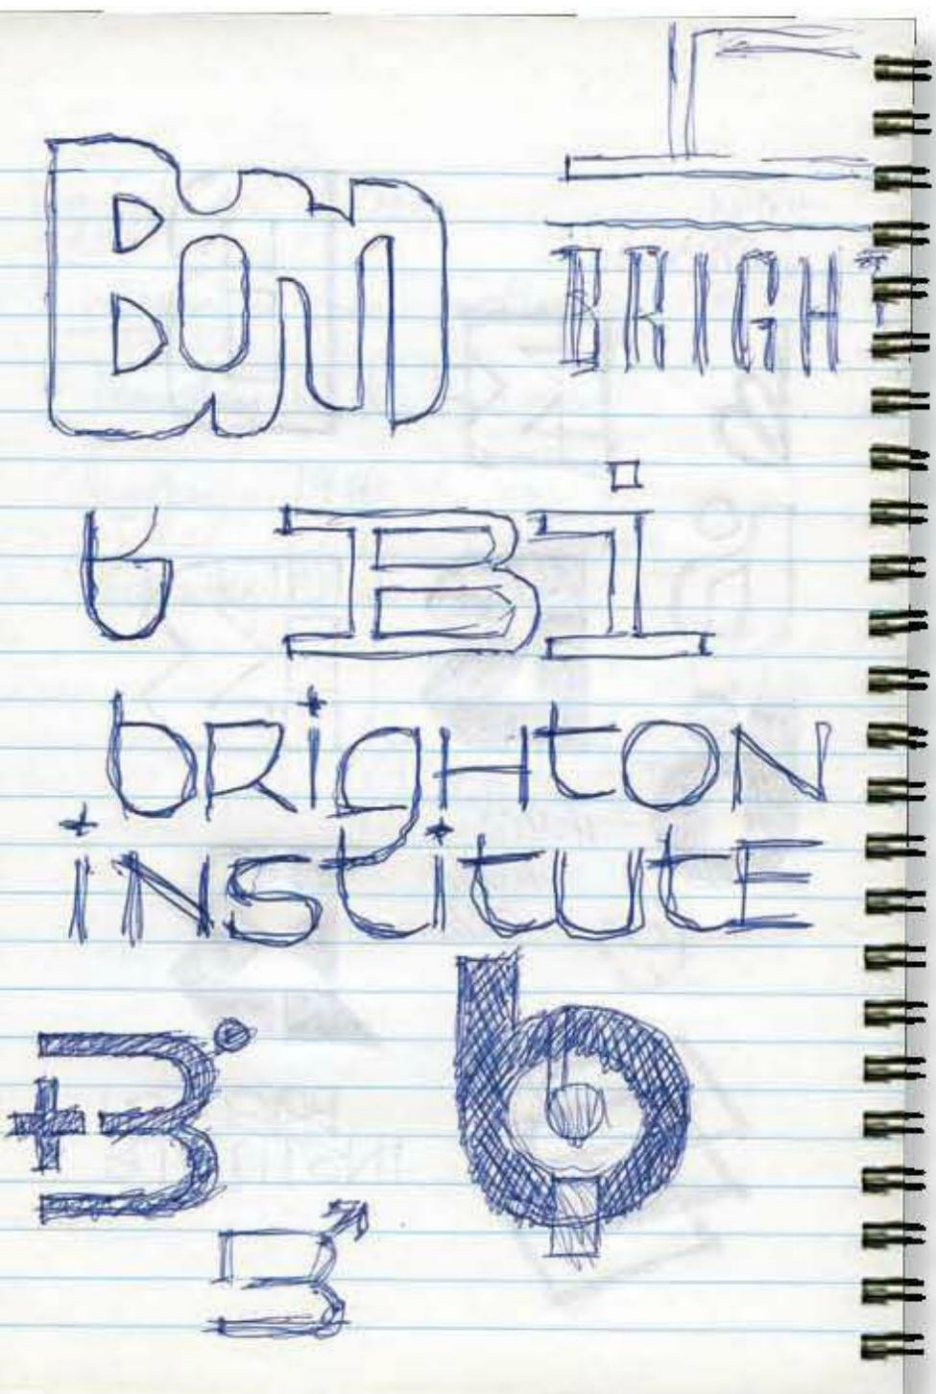 BRIGHT
Bi
bRigHtON
iNStitutE
b
B